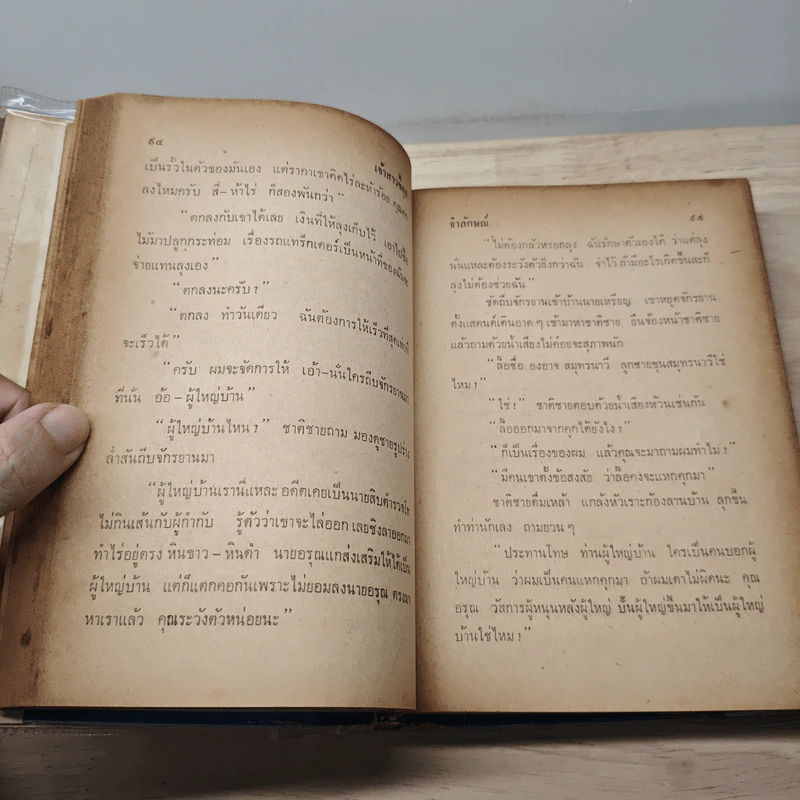 ๙๔
เป็นรั้วในตัวของมันเอง แต่ราคาเขาคิดไร่ละห้าร้อย
ลงไหมครับ สี่-ห้าไร่ ก็สองพันกว่า”
“ตกลงกับเขาได้เลย เงินที่ให้ลุงเก็บไว้ เอาไปซื้อ
ไม้มาปลูกกระท่อม เรื่องรถแทร็กเตอร์เป็นหน้าที่ของฉันจะ
จ่ายแทนลุงเอง”
“ตกลงนะครับ?”
“ตกลง ทำวันเดียว ฉันต้องการให้เร็วที่สุดเท่าที่
จะเร็วได้”
“ครับ ผมจะจัดการให้ เอ้า-นั่นใครถีบจักรยานมา
ที่นั่น อ้อ-ผู้ใหญ่บ้าน”
“ผู้ใหญ่บ้านไหน?” ชาติชายถาม มองดูชายรูปร่าง
ล่ำสันถีบจักรยานมา
“ผู้ใหญ่บ้านเรานี่แหละ อดีตเคยเป็นนายสิบตำรวจโท
ไม่กินเส้นกับผู้กำกับ รู้ตัวว่าเขาจะไล่ออก เลยชิงลาออกมา
ทำไร่อยู่ตรง หินขาว-หินดำ นายอรุณแกส่งเสริมให้ได้เป็น
ผู้ใหญ่บ้าน แต่ก็แตกคอกันเพราะไม่ยอมลงนายอรุณ ตรงมา
หาเราแล้ว คุณระวังตัวหน่อยนะ”
จำลักษณ์ ๙๕
“ไม่ต้องกลัวหรอกลุง ฉันรักษาตัวเองได้ ว่าแต่ลุง
นั่นแหละต้องระวังตัวยิ่งกว่าฉัน จำไว้ ถ้ามีอะไรเกิดขึ้นละก็
ลุงไม่ต้องช่วยฉัน”
ชัดถีบจักรยานเข้าบ้านนายเหรียญ เขาหยุดจักรยาน
ตั้งแสตนด์เดินอาด ๆ เข้ามาหาชาติชาย ยืนจ้องหน้าชาติชาย
แล้วถามด้วยน้ำเสียงไม่ค่อยจะสุภาพนัก
“ลื้อชื่อ องอาจ สมุทรนาวี ลูกชายขุนสมุทรนาวีใช่
ไหม?”
“ใช่!” ชาติชายตอบด้วยน้ำเสียงห้วนเช่นกัน
“ลื้อออกมาจากคุกได้ยังไง?”
“ก็เป็นเรื่องของผม แล้วคุณจะมาถามผมทำไม?”
“มีคนเขาตั้งข้อสงสัย ว่าลื้อคงจะแหกคุกมา”
ชาติชายดื่มเหล้า แกล้งหัวเราะก้องลานบ้าน ลุกขึ้น
ทำท่านักเลง ถามยวน ๆ
“ประทานโทษ ท่านผู้ใหญ่บ้าน ใครเป็นคนบอกผู้
ใหญ่บ้าน ว่าผมเป็นคนแหกคุกมา ถ้าผมเดาไม่ผิดนะ คุณ
อรุณ วัสการผู้หนุนหลังผู้ใหญ่ ปั้นผู้ใหญ่ขึ้นมาให้เป็นผู้ใหญ่
บ้านใช่ไหม?”